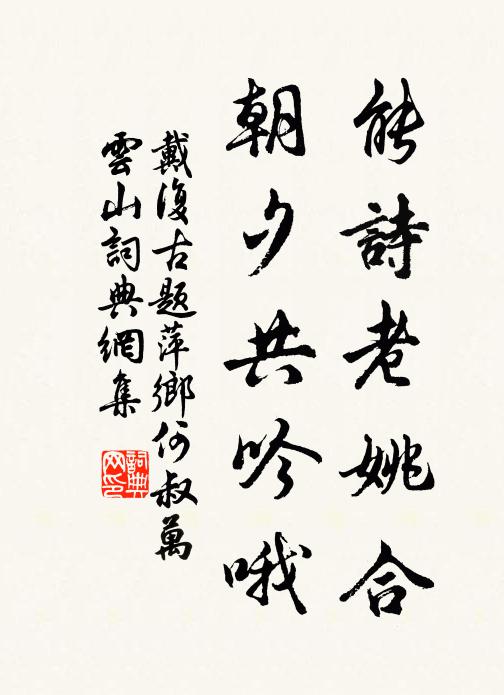 能詩老姚合
朝夕共吟哦
戴復古題萍鄉何叔萬
雲山詞典網集
詞典
网印